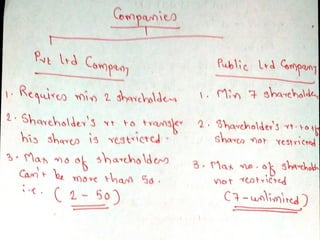 Companies
Pvt Ltd Company
1. Requires min 2 shareholders
2. Shareholder's rt to transfer
his shares is restricted.
3. Max no of shareholders
Can't be more than 50.
i.e. (2-50)
Public Ltd Company
1. Min 7 shareholders
2. Shareholder's rt. to
shares not restricted
3. Max no. of shareholders
not restricted
(7-unlimited)